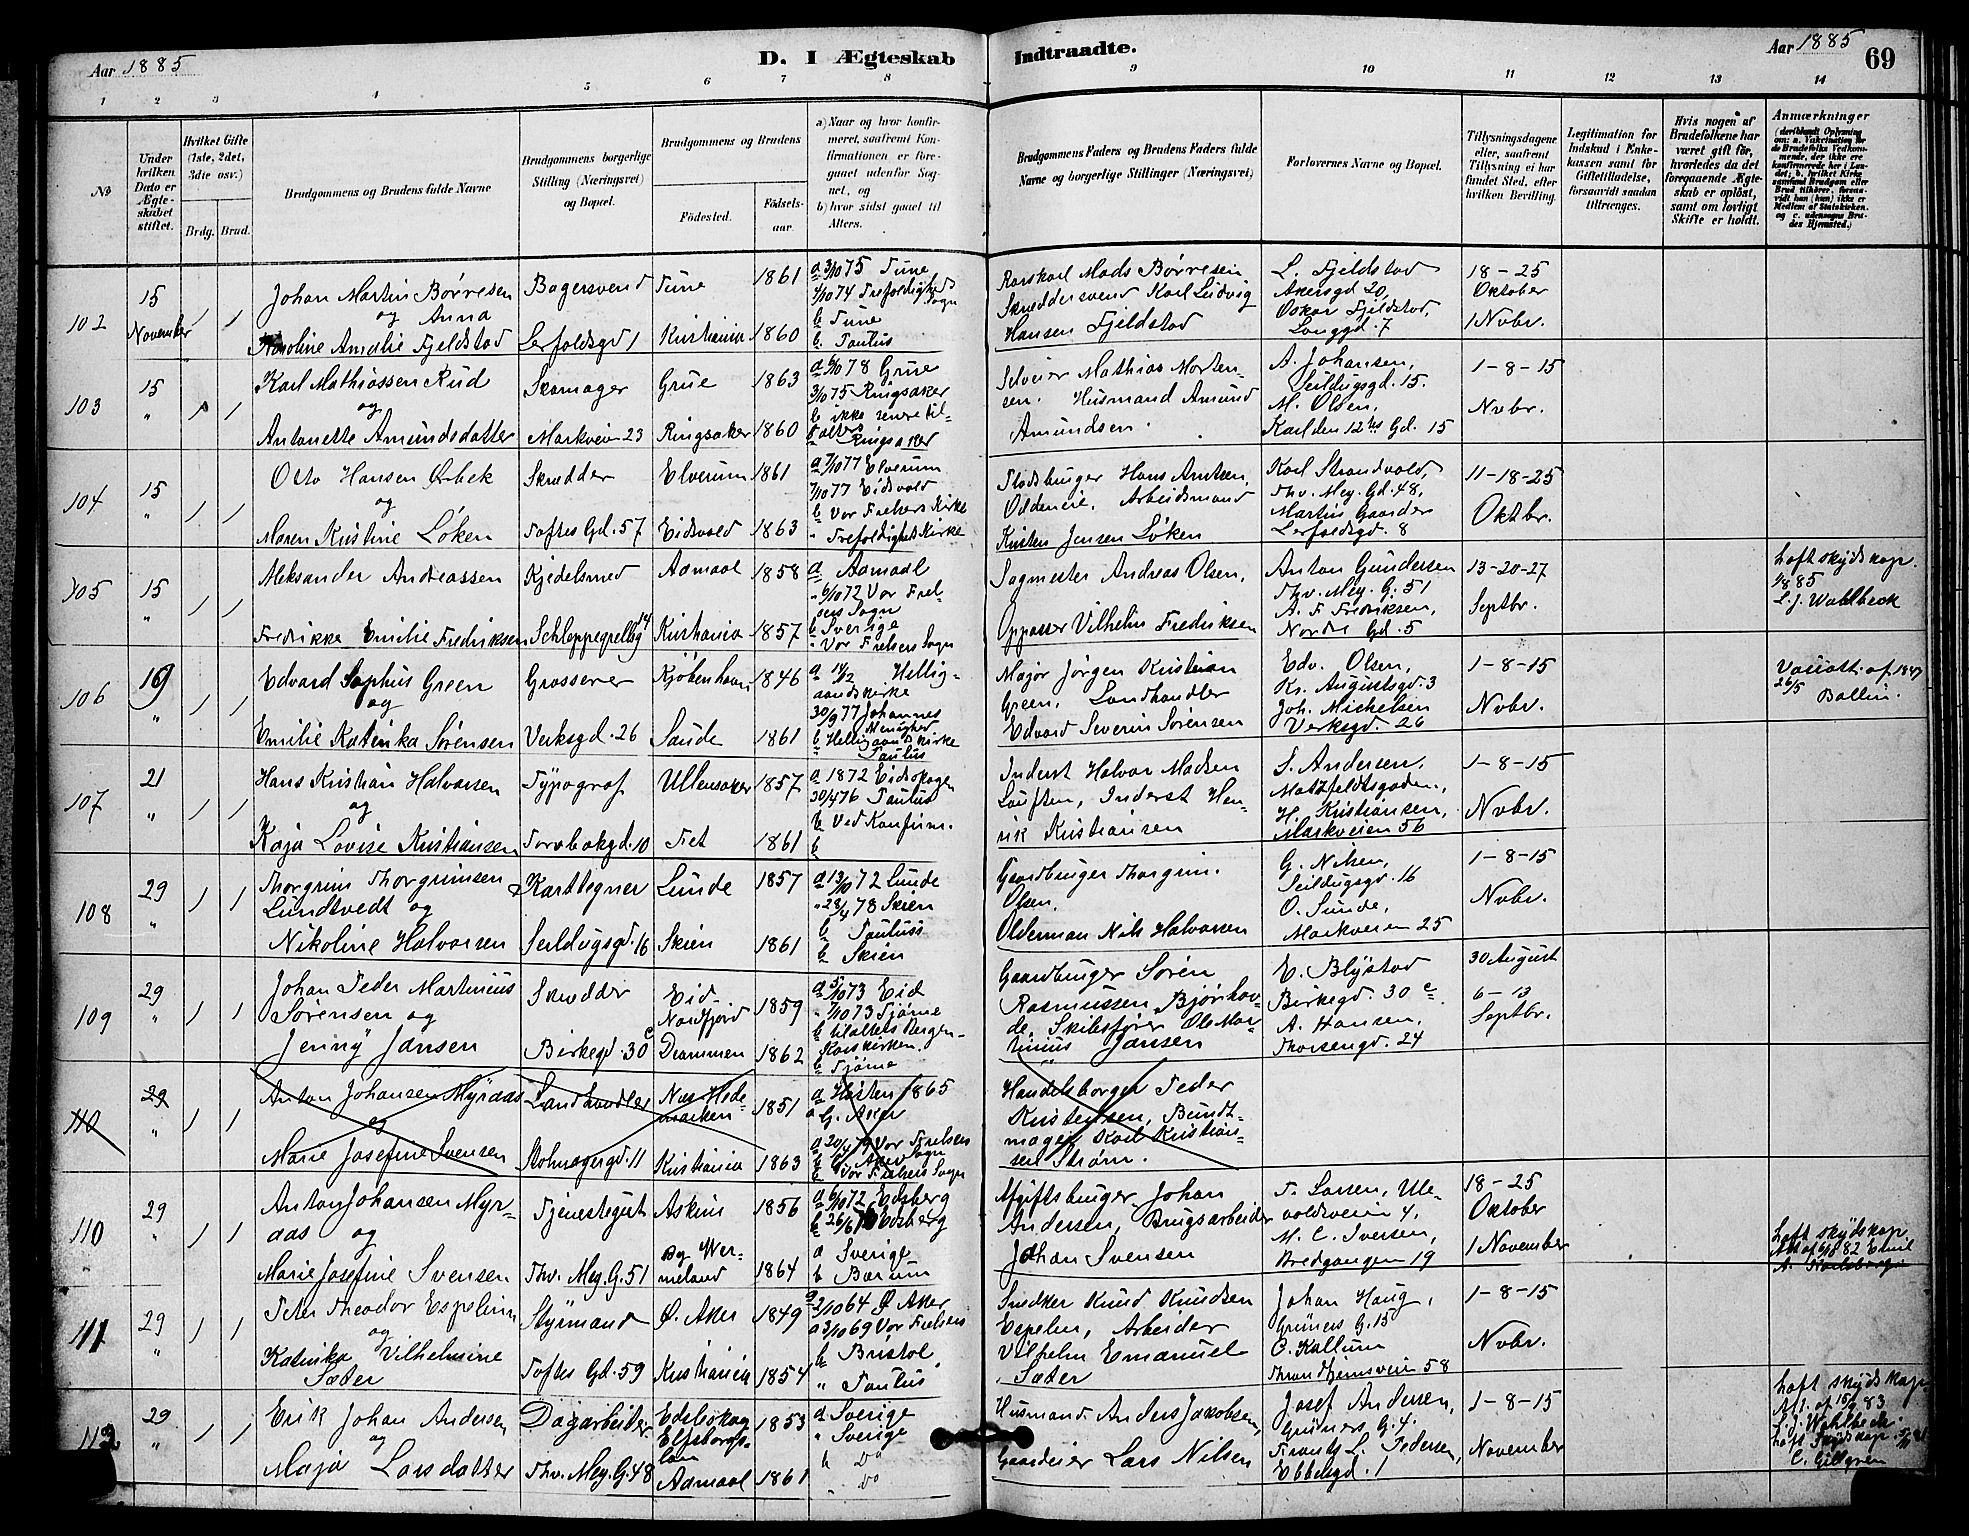 Aar 1885
D. I Ægteskab
Indtraadte.
Aar 1885
69
1 2 3 4 5 6 7 8 9 10 11 12 13 14
No
Under hvilken Dato er Ægteskabet stiftet.
Hvilket Gifte (1ste, 2det, 3die osv.)
Brdg. Brud.
Brudgommens og Brudens fulde Navne
Brudgommens borgerlige Stilling (Næringsvei) og Bopæl.
Brudgommens og Brudens
Fødested.
Fødsels-aar.
a) Naar og hvor konfirmeret, saafremt Konfirmationen er foregaaet udenfor Sognet, og
b) hvor sidst gaaet til Alters.
Brudgommens Faders og Brudens Faders fulde Navne og borgerlige Stillinger (Næringsvei)
Forlovernes Navne og Bopæl.
Tillysningsdagene eller, saafremt Tillysning ei har fundet Sted, efter hvilken Bevilling.
Legitimation for Indskud i Enkekassen samt for Giftetilladelse, forsaavidt saadan tiltrænges.
Hvis nogen af Brudefolkene har været gift før, hvorledes da det foregaaende Ægteskab er opløst, samt om lovligt Skifte er holdt.
Anmærkninger
(deriblandt Oplysning om: a. Vakcination for de Brudefolks Vedkommende, der ikke ere konfirmerede her i Landet; b. hvilket Kirkesamfund Brudgom eller Brud tilhører, forsaavidt han (hun) ikke er Medlem af Statskirken, og c. udensogns Brudes Hjemsted.)
102
15 November
1 1
Johan Martin Børresen og Anna
Karoline Amalie Fjeldstad
Bagersvend
Lerfoldsgd 1
Tune 1861
Kristiania 1860
a 3/10 75 Tune
4/10 74 Trefoldigheds Sogn
b Tune
b Paulus
Karskarl Mads Børresen
Skræddersvend Karl Ludvig
Hansen Fjeldstad
L. Fjeldstad
Akersgd 20,
Oskar Fjeldstad,
Langgd. 7
18-25
Oktober
1 Nvbr.
103
15 "
1 1
Karl Mathiassen Rud
og
Antonette Amundsdatter
Skomager
Markveien 23
Grue 1863
Ringsaker 1860
a 6/10 78 Grue
3/10 75 Ringsaker
b ikke senere til-
alters
Ringsaker
Selveier Mathias Morten-
sen. Husmand Amund
Amundsen.
A. Johansen,
Seildugsgd. 15.
M. Olsen,
Karl den 12tes Gd. 15
1-8-15
Nvbr.
104
15 "
1 1
Otto Hansen Ørbek
og
Maren Kristine Løken
Skrædder
Toftes Gd. 57
Elverum 1861
Eidsvold 1863
a 7/10 77 Elverum
7/10 77 Eidsvold
b Vor Frelsers Kirke
" Trefoldigheds Kirke
Pladsbruger Hans Arntsen,
Oldeneie, Arbeidsmand
Kristen Jensen Løken
Karl Strandvold,
Thv. Mey. Gd. 48,
Martin Gaarder
Lerfoldsgd. 8
11-18-25
Oktbr.
105
15 "
1 1
Aleksander Andreassen
Fredrikke Emilie Fredriksen
Kjedelsmed
Schleppegrellsg 14
Aamaal 1858
Kristiania 1857
a Aamaal
" 6/10 72 Vor Frel-
sers Sogn
b Sverige
" Vor Frelsers Sogn
Sagmester Andreas Olsen,
Oppasser Vilhelm Fredriksen
Anton Gundersen
Thv. Mey. G. 51
A. F. Fredriksen,
Nordre Gd. 5
13-20-27
Septbr.
Løft skydskap.
1/8 85
L. J. Wahlbeck
106
16 "
1 1
Edvard Sophus Green
og
Emilie Katinka Sørensen
Grosserer
Verksgd. 26
Kjøbenhavn 1846
Sande 1861
Hellig-
aandskirke
30/9 77 Johannes
Menighed
b Helligaandskirke
" Paulus
Major Jørgen Kristian
Green, Landhandler
Edvard Severin Sørensen
Edv. Olsen,
Kr. Augustsgd. 3
Joh. Michelsen
Verksgd. 26
1-8-15
Nvbr.
Vaccatt. af 1847
26/5 Ballin.
107
21 "
1 1
Hans Kristian Halvorsen
og
Kaja Lovise Kristiansen
Typograf
Torvbakgd. 10
Ullensaker 1857
Fet 1861
a 1872 Eidskogen
30/4 76 Paulus
b Ved Konfirm.
b
Inderst Halvor Madsen
Inderst Hen-
rik Kristiansen
S. Andersen,
Motzfeldtsgaden,
H. Kristiansen,
Markveien 56
1-8-15
Nvbr.
108
29 "
1 1
Thorgrim Thorgrimsen
Lundtvedt og
Nikoline Halvorsen
Karttegner
Seildugsgd. 16
Lunde 1857
Skien 1861
a 13/10 72 Lunde
" 28/4 78 Skien
b Paulus
b Skien
Gaardbruger Thorgrim
Olsen.
Olderman Nils Halvorsen
G. Nilsen,
Seildugsgd. 16
O. Sunde,
Markveien 25
1-8-15
Nvbr.
109
29 "
1 1
Johan Peder Martinius
Sørensen og
Jenny Jansen
Skrædder
Birkegd. 30 c
Eid- Nordfjord 1859
Drammen 1862
a 5/10 73 Eid
" 7/10 73 Tjøme
b tilalters Bergen
Korskirken.
b Tjøme
Gaardbruger Søren
Rasmussen Bjørhov-
de, Skibsfører Ole Mar-
tinius Jansen
E. Blystad
Birkegd. 30 c.
A. Hansen,
Thorsengd. 24
30 August
6-13
Septbr.
110
29 "
1 1
Anton Johansen Myraas
og
Marie Josefine Svensen
Landhandler
Holmagergd. 11
Næs Hede-
marken 1851
Kristiania 1863
a Høsten 1865
G. Aker
a 20/4 79 Vor Frelsers
b Aker Sogn
b Vor Frelsers Sogn
Handelsborger Peder
Kristensen, Bundt-
mager Karl Kristian-
sen Strøm.
110
29 "
1 1
Anton Johansen Myr-
aas og
Marie Josefine Svensen
Tjenestegut
Thv. Mey. G. 51
Askim 1856
By Wer-
meland 1864
a 6/10 72 Edsberg
b Edsberg
a Sverige
b Bærum
Afgiftsbruger Johan
Andersen, Brugsarbeider
Johan Svensen
T. Larsen, Ule-
voldsveien 4,
M. C. Iversen,
Bredgangen 19
18-25
Oktober
1 November
Løft skydskap
Att af 6/8 82 Emil
A. Karlsborg
111
29 "
1 1
Peter Theodor Espelin
og
Katinka Vilhelmine
Sæter
Styrmand
Toftes Gd. 59
Ø. Aker 1849
Kristiania 1854
a 2/10 64 Ø Aker
a 3/10 69 Vor Frelsers
b Bristol
" Paulus
Snedker Knud Knudsen
Espelin, Arbeider
Vilhelm Emanuel
Sæter
Johan Haug,
Grüners G. 15
O. Kallum
Throndhjemsveien 58
1-8-15
Nvbr.
112
29 "
1 1
Erik Johan Andersen
og
Maja Larsdatter
Dagarbeider
Thv. Mey. G. 48
Edelskog
Elfsborgs-
län 1853
Aamaal 1861
a Sverige
" Sverige
b Do
" Do
Husmand Anders Jakobsen,
Gaardeier Lars Nilsen
Josef Andersen,
Grüners G. 4.
Frants L. Pedersen,
Ebbelsgd. 1
1-8-15
November
Løft skydskap
Att. af 15/9 83
L. J. Wahlbeck.
Løft skydskap.
C. Gillgren